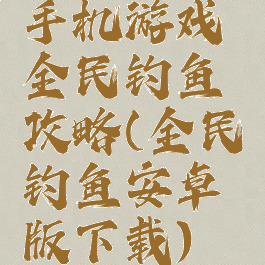 手机游戏
全民钓鱼
攻略(全民
钓鱼安卓
版下载)